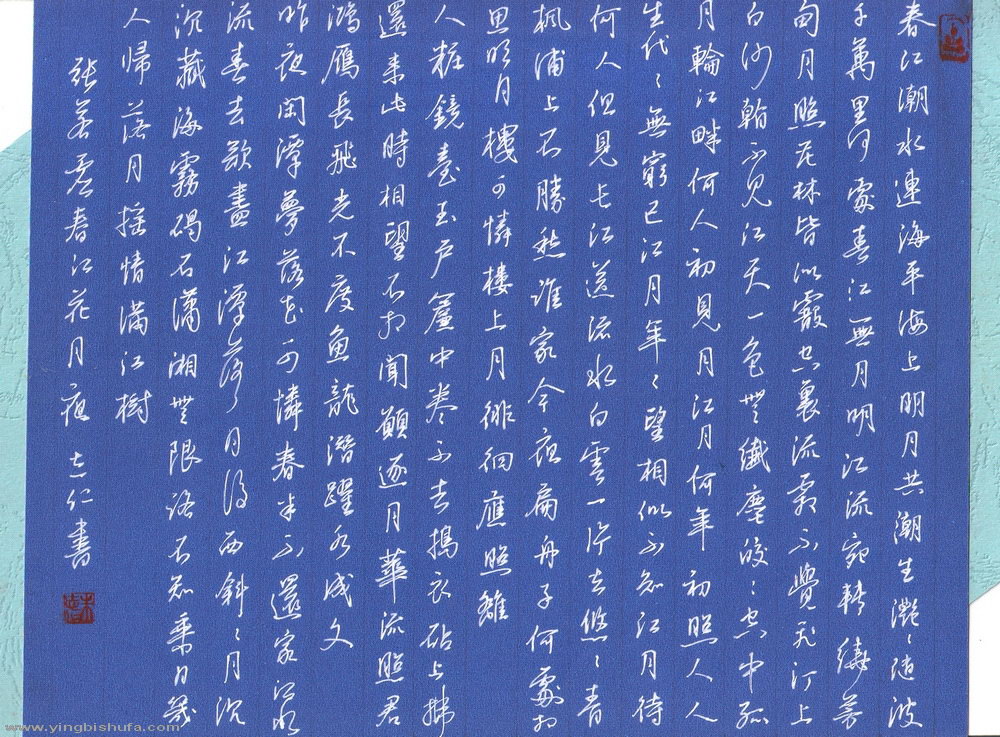 春江潮水連海平海上明月共潮生灩〻随波
千萬里何處春江無月明江流宛轉繞芳
甸月照花林皆似霰空裏流霜不覺飛汀上
白沙看不見江天一色無纖塵皎〻空中孤
月輪江畔何人初見月江月何年初照人人
生代〻無窮已江月年〻望相似不知江月待
何人但見長江送流水白雲一片去悠〻青
楓浦上不勝愁誰家今夜扁舟子何處相
思明月樓可憐樓上月徘徊應照離
人粧鏡臺玉户簾中卷不去搗衣砧上拂
還來此時相望不相聞願逐月華流照君
鴻雁長飛光不度魚龍潛躍水成文
昨夜閑潭夢落花可憐春半不還家江水
流春去欲盡江潭落月復西斜〻月沉
沉藏海霧碣石瀟湘無限路不知乘月幾
人歸落月摇情滿江樹
張若虚春江花月夜 志仁書
www.yingbishufa.com